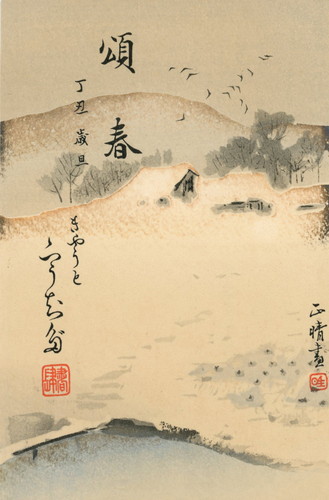 頌春
丁丑 歳旦
きやうと
正晴畫